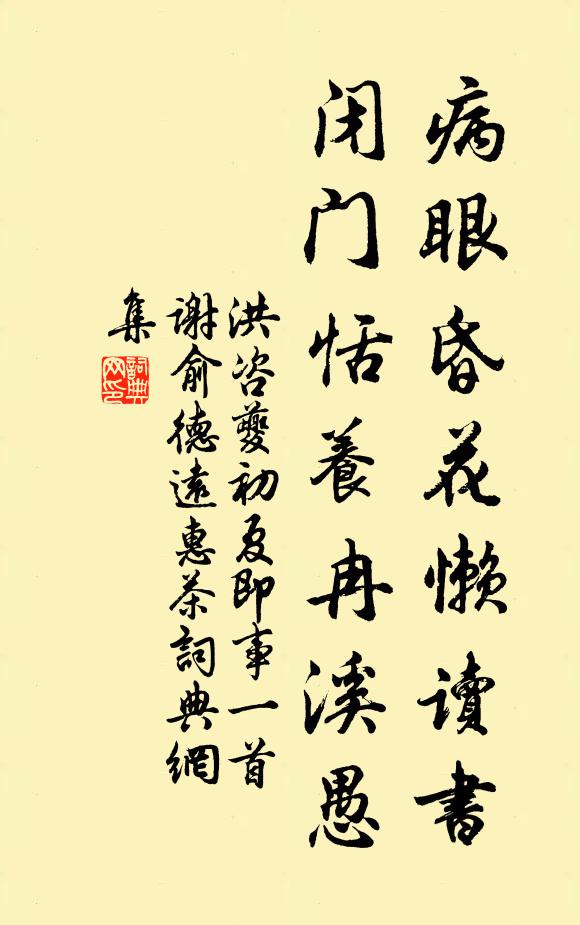 病眼昏花懒讀書
闭门恬養冉溪愚
洪咨夔初夏即事一首
谢俞德遠惠茶詞典網
集
詞典
网印